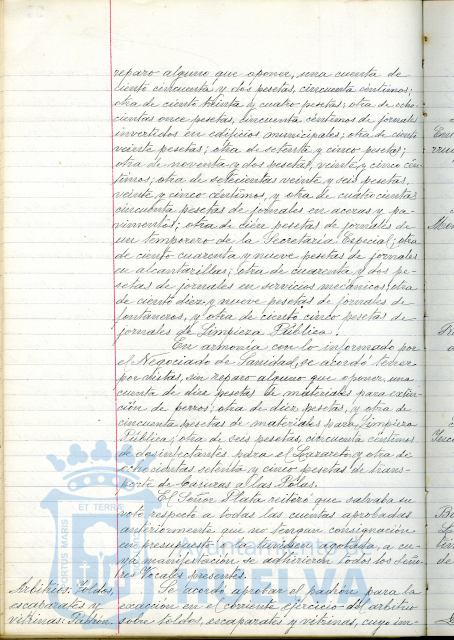 reparo alguno que oponer, una cuenta de
ciento cincuenta y dos pesetas, cincuenta centimos;
otra de ciento treinta y cuatro pesetas; otra de ocho-
cientas once pesetas, cincuenta centimos de jornales
invertidos en edificios municipales; otra de ciento
veinte pesetas; otra de setenta y cinco pesetas;
otra de noventa y dos pesetas, veinte y cinco cén-
timos; otra de setecientas veinte y seis pesetas,
veinte y cinco céntimos, y otra de cuatrocientas
cincuenta pesetas de jornales en aceras y pa-
vimentos; otra de diez pesetas de jornales de
un temporero de la Secretaría Especial; otra
de ciento cuarenta y nueve pesetas de jornales
en alcantarillas; otra de cuarenta y dos pe-
setas de jornales en servicios mecánicos; otra
de ciento diez y nueve pesetas de jornales de
fontaneros, y otra de ciento cinco pesetas de
jornales de Limpieza Pública.
En armonía con lo informado por
el Negociado de Sanidad, se acordó tener
por vistas, sin reparo alguno que oponer, una
cuenta de diez pesetas de materiales para extin-
ción de perros; otra de diez pesetas, y otra de
cincuenta pesetas de materiales para Limpieza
Pública; otra de seis pesetas, cincuenta centimos
de desinfectantes para el Lazareto y otra de
ochocientas setenta y cinco pesetas de trans-
porte de basuras a las Pólas.
El Señor Plata reiteró que salvaba su
voto respecto a todas las cuentas aprobadas
anteriormente que no tengan consignación
en presupuesto o la tuviesen agotada, a cu-
ya manifestación se adhirieron todos los Seño-
res Vocales presentes.
Arbitrios: Toldos,
escaparates y
vitrinas: Padrón.
Se acordó aprobar el padrón para la
exacción en el corriente ejercicio del arbitrio
sobre toldos, escaparates y vitrinas, cuyo im-
PORTUS MARIS ET TERRAE
Ayuntamiento
HUELVA